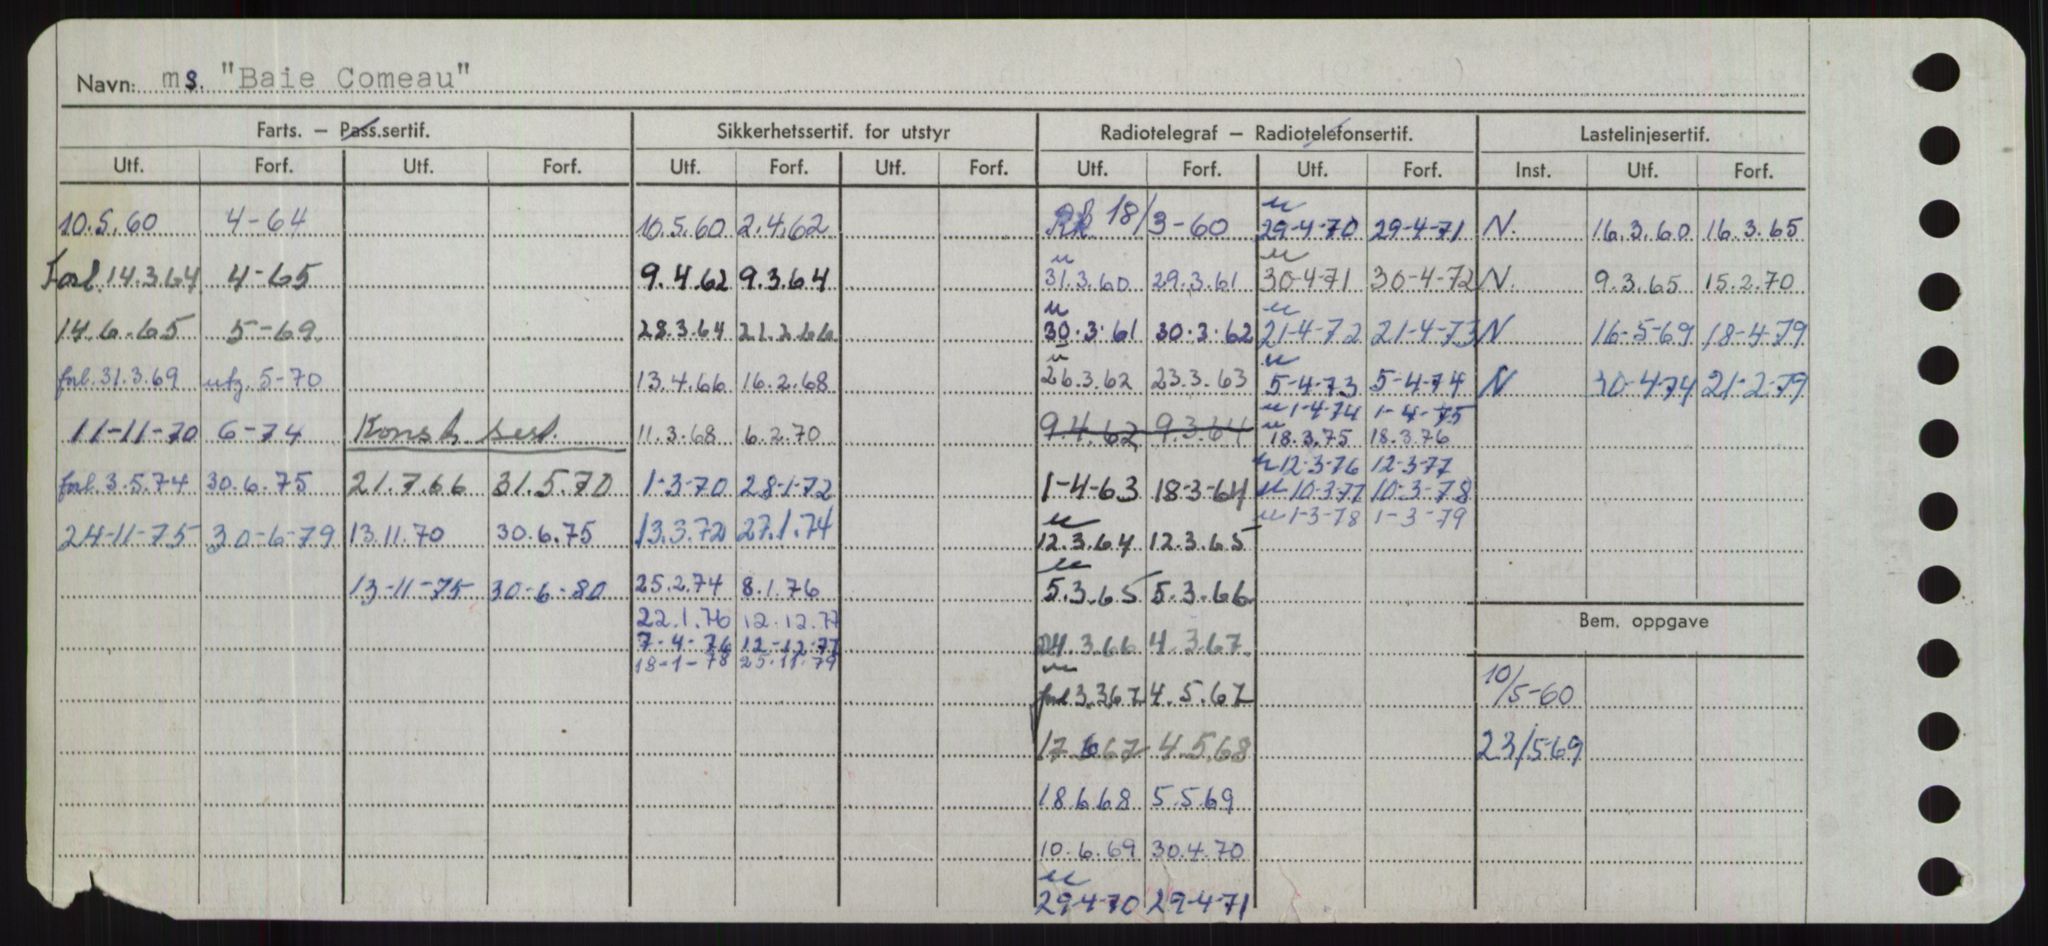 Navn: ms. "Baie Comeau"
Farts. — Pass.sertif. Sikkerhetssertif. for utstyr Radiotelegraf — Radiotelefonsertif. Lastelinjesertif.
Utf. Forf. Utf. Forf. Utf. Forf. Utf. Forf. Utf. Forf. Utf. Forf. Inst. Utf. Forf.
10.5.60 4-64 10.5.60 2.4.62 RR 18/3-60 u 29-4-70 29-4-71 N. 16.3.60 16.3.65
Forl. 14.3.64 4-65 9.4.62 9.3.64 u 31.3.60 29.3.61 u 30-4-71 30-4-72 N. 9.3.65 15.2.70
14.6.65 5-69 28.3.64 21.2.66 u 30.3.61 30.3.62 u 21-4-72 21-4-73 N 16-5-69 18-4-79
forl. 31.3.69 utg. 5-70 13.4.66 16.2.68 u 26.3.62 23.3.63 u 5-4-73 5-4-74 N 30-4-74 21-2-79
u 1-4-74 1-4-75
11-11-70 6-74 Konst. sert. 11.3.68 6.2.70 9.4.62 9.3.64 u 18.3.75 18.3.76
u 12-3-76 12-3-77
forl. 3.5.74 30.6.75 21.7.66 31.5.70 1-3-70 28-1-72 1-4-63 18-3-64 u 10-3-77 10-3-78
u 1-3-78 1-3-79
24-11-75 30-6-79 13.11.70 30.6.75 13.3.72 27.1.74 u 12.3.64 12.3.65
13-11-75 30-6-80 25.2.74 8.1.76 u 5.3.65 5.3.66
22.1.76 12.12.77
Bem. oppgave
7-4-76 12-12-77 24.3.66 4.3.67
18-1-78 25.11.79
u forl 3.3.67 4.5.67 10/5-60
17.6.67 4.5.68 23/5-69
18.6.68 5.5.69
10.6.69 30.4.70
u 29-4-70 29-4-71